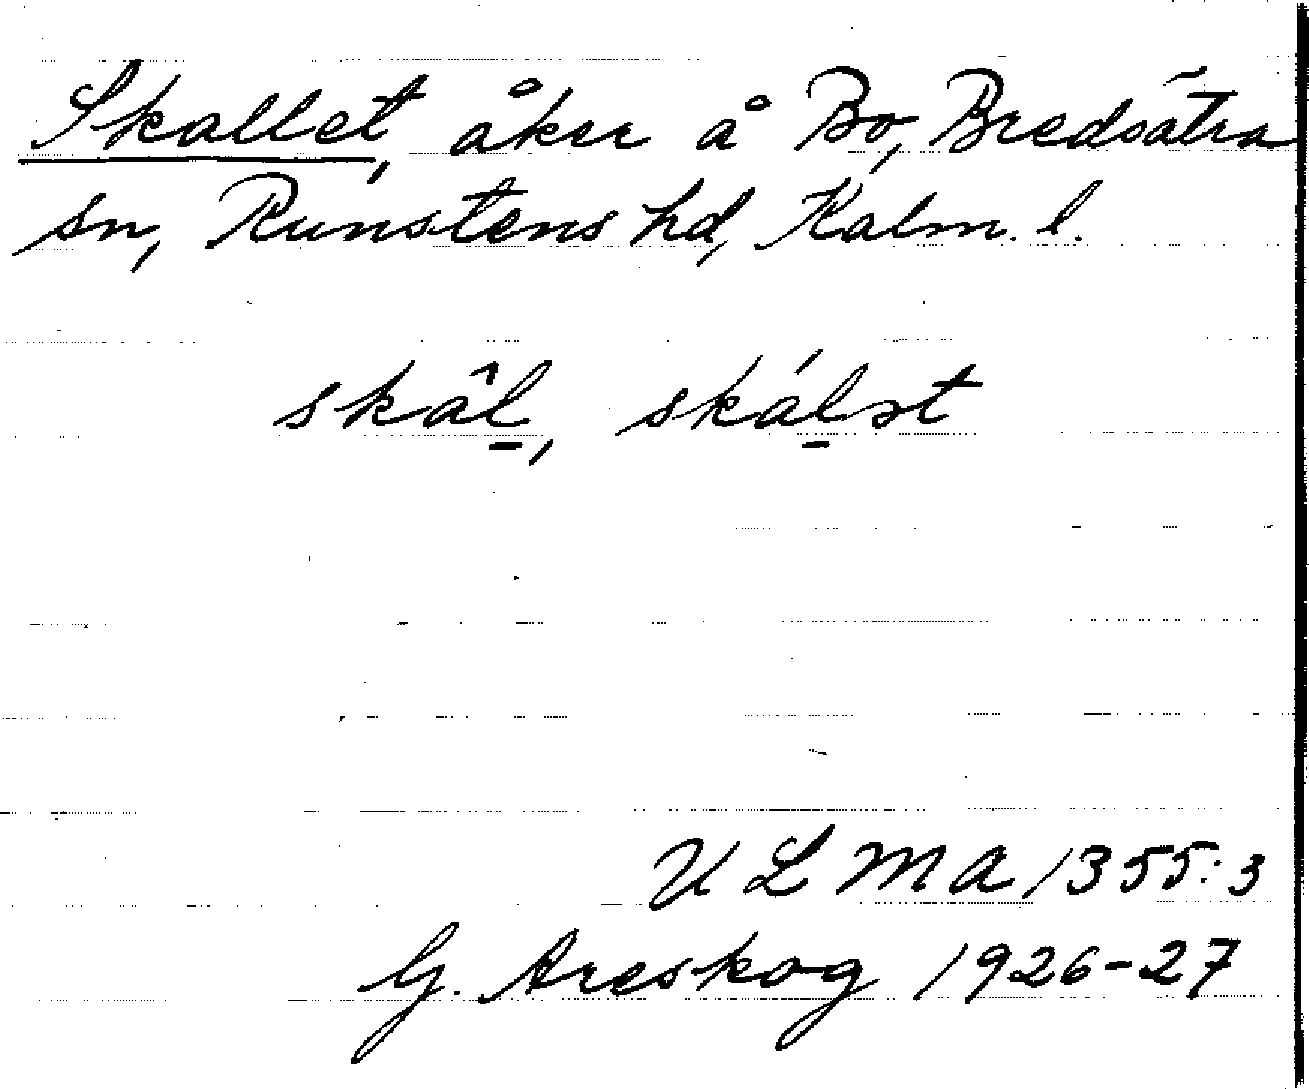 Skallet, åker å Bo, Bredsätra
sn, Runstens hd, Kalm. l.
skâl̲, skál̲ət
ULMA 1355:3
G. Areskog 1926-27